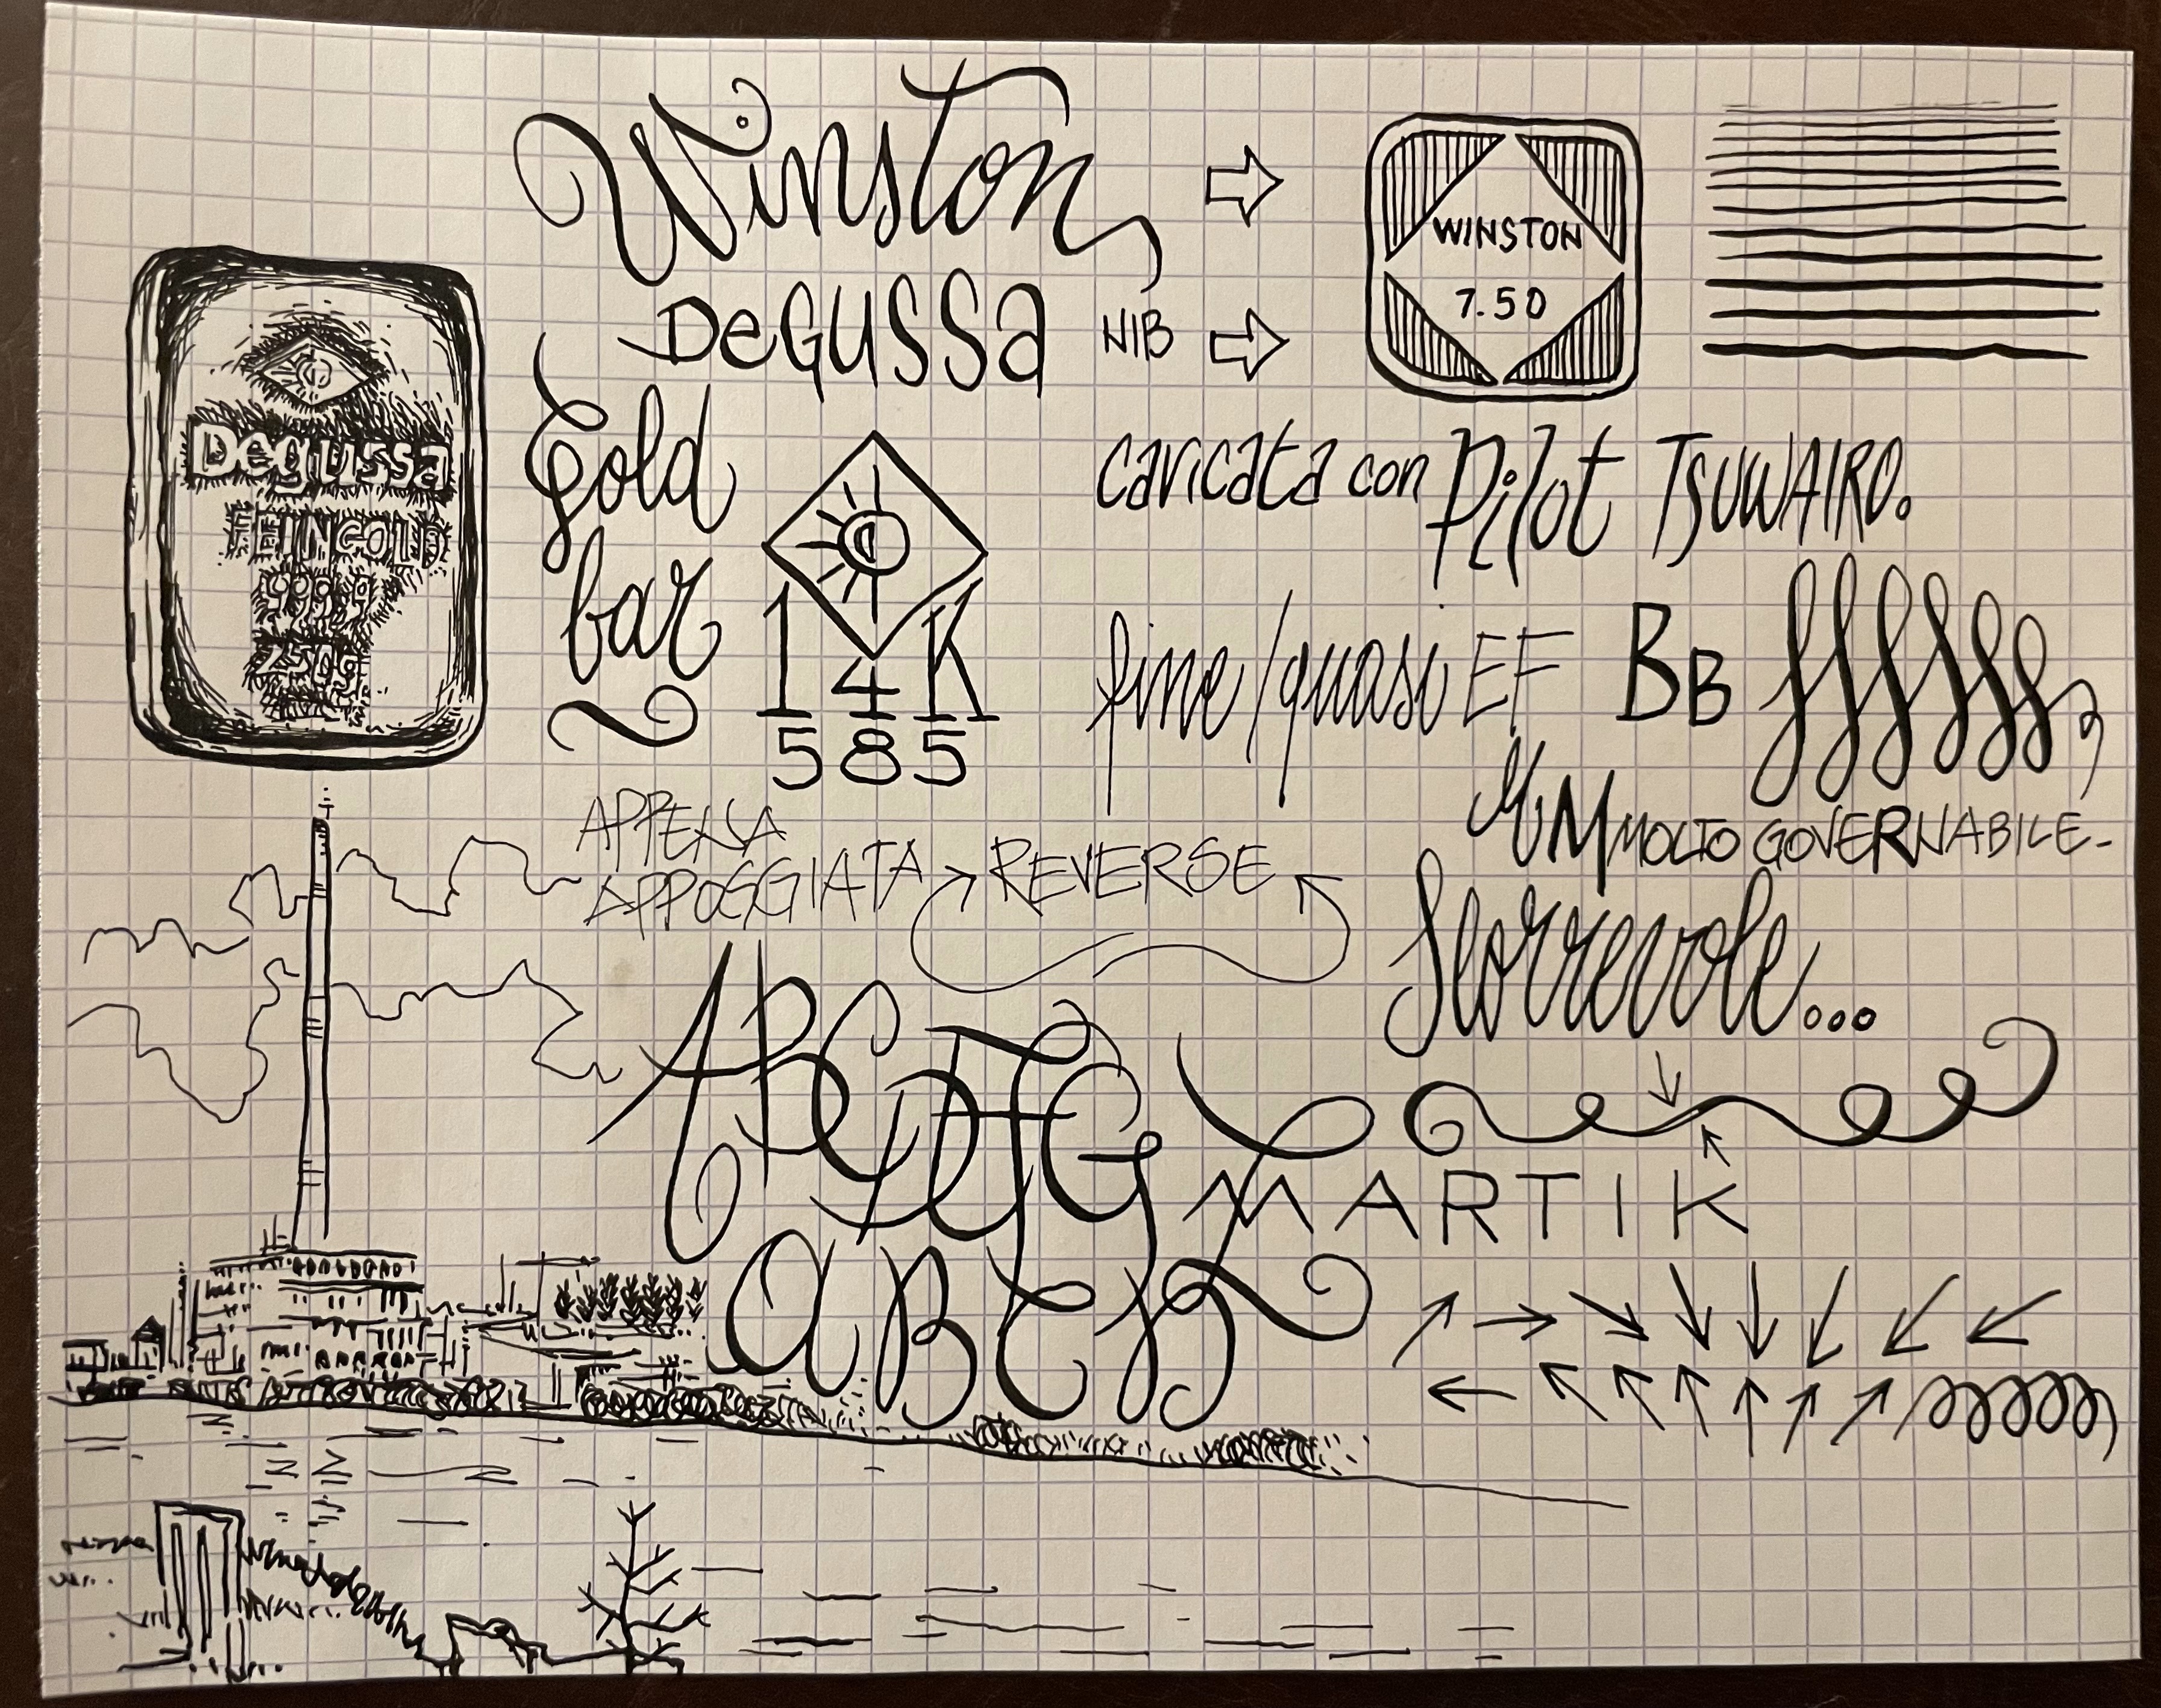 Winston
Degussa
NIB
WINSTON
7.50
Degussa
FEINGOLD
999.9
250g
Gold
bar
14K
585
caricata con Pilot TSUWAIRO.
fine/quasi EF BB
MOLTO GOVERNABILE-
APPENA
APPOGGIATA
REVERSE
Scorrevole...
MARTIK